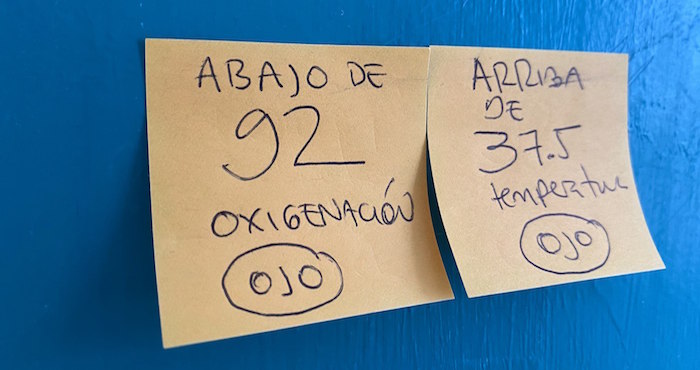 ABAJO DE
92
OXIGENACIÓN
OJO
ARRIBA
DE
37.5
temperatura
OJO